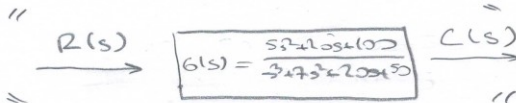 R(s)
G(s) = 5s²+20s+100 / s³+7s²+20s+50
C(s)